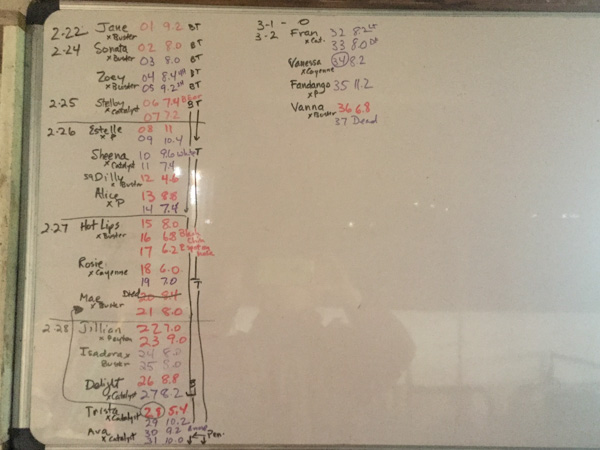 2-22 Jane 01 9.2 BT
x Buster
2-24 Sonata 02 8.0 BT
x Buster 03 8.0 BT
Zoey 04 8.4 BT
x Buster 05 9.2 BT
2-25 Shelby 06 7.4 BT
x Catalyst 07 7.2
2-26 Estelle 08 11
x P 09 10.4
Sheena 10 9.6 white T
x Catalyst 11 7.4
Dilly 12 4.6
x Buster
Alice 13 8.8
x P 14 7.4
2-27 Hot Lips 15 8.0
x Buster 16 6.8
17 6.2
Rosie 18 6.0
x Cayenne 19 7.0 T
Mae Died 20 8.4
x Buster 21 8.0
2-28 Jillian 22 7.0
x Peyton 23 9.0
Isadora x 24 8.0
Buster 25 8.0
Delight 26 8.8
x Catalyst 27 8.2
Trista 28 5.4
x Catalyst 29 10.2
Ava 30 9.2
x Catalyst 31 10.0 Pen
3-1 - 0
3-2 Fran 32 8.2
x Cat. 33 8.0
Vanessa 34 8.2
x Cayenne
Fandango 35 11.2
x P
Vanna 36 6.8
x Buster 37 Dead